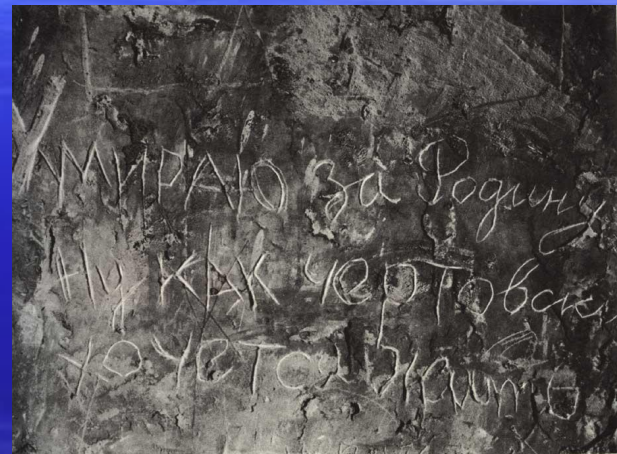 УМИРАЮ за Родину
Ну КАК чертовск
хочется жить